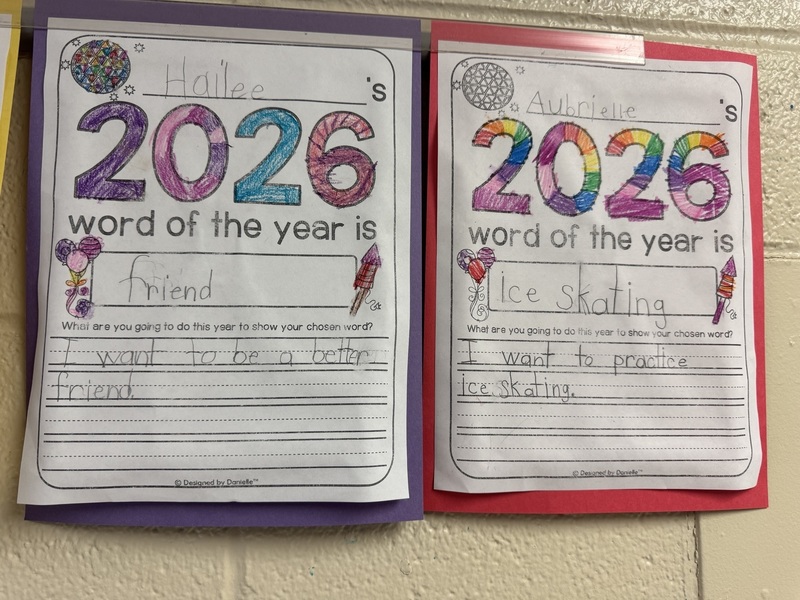 Hailee 's
2026
word of the year is
friend
What are you going to do this year to show your chosen word?
I want to be a better
friend.
© Designed by Danielle™
Aubrielle 's
2026
word of the year is
ice skating
What are you going to do this year to show your chosen word?
I want to practice
ice skating.
© Designed by Danielle™